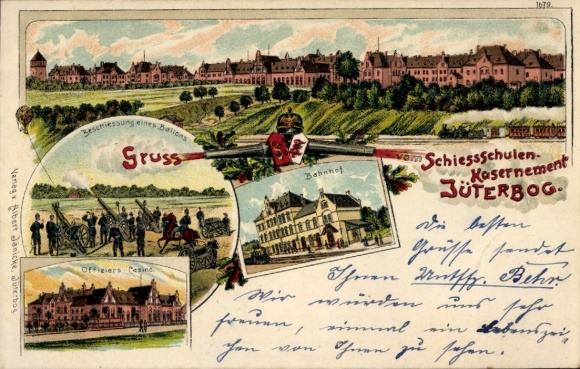 1679.
Beschiessung eines Ballons
Gruss vom Schiessschulen-
Kasernement
JÜTERBOG.
Bahnhof
Offiziers-Casino.
Jüterbog.
Die besten
Grüsse sendet
Ihnen Untffz. Behr.
Wir würden uns sehr
freuen, einmal ein Lebenszei-
chen von Ihnen zu sehen.